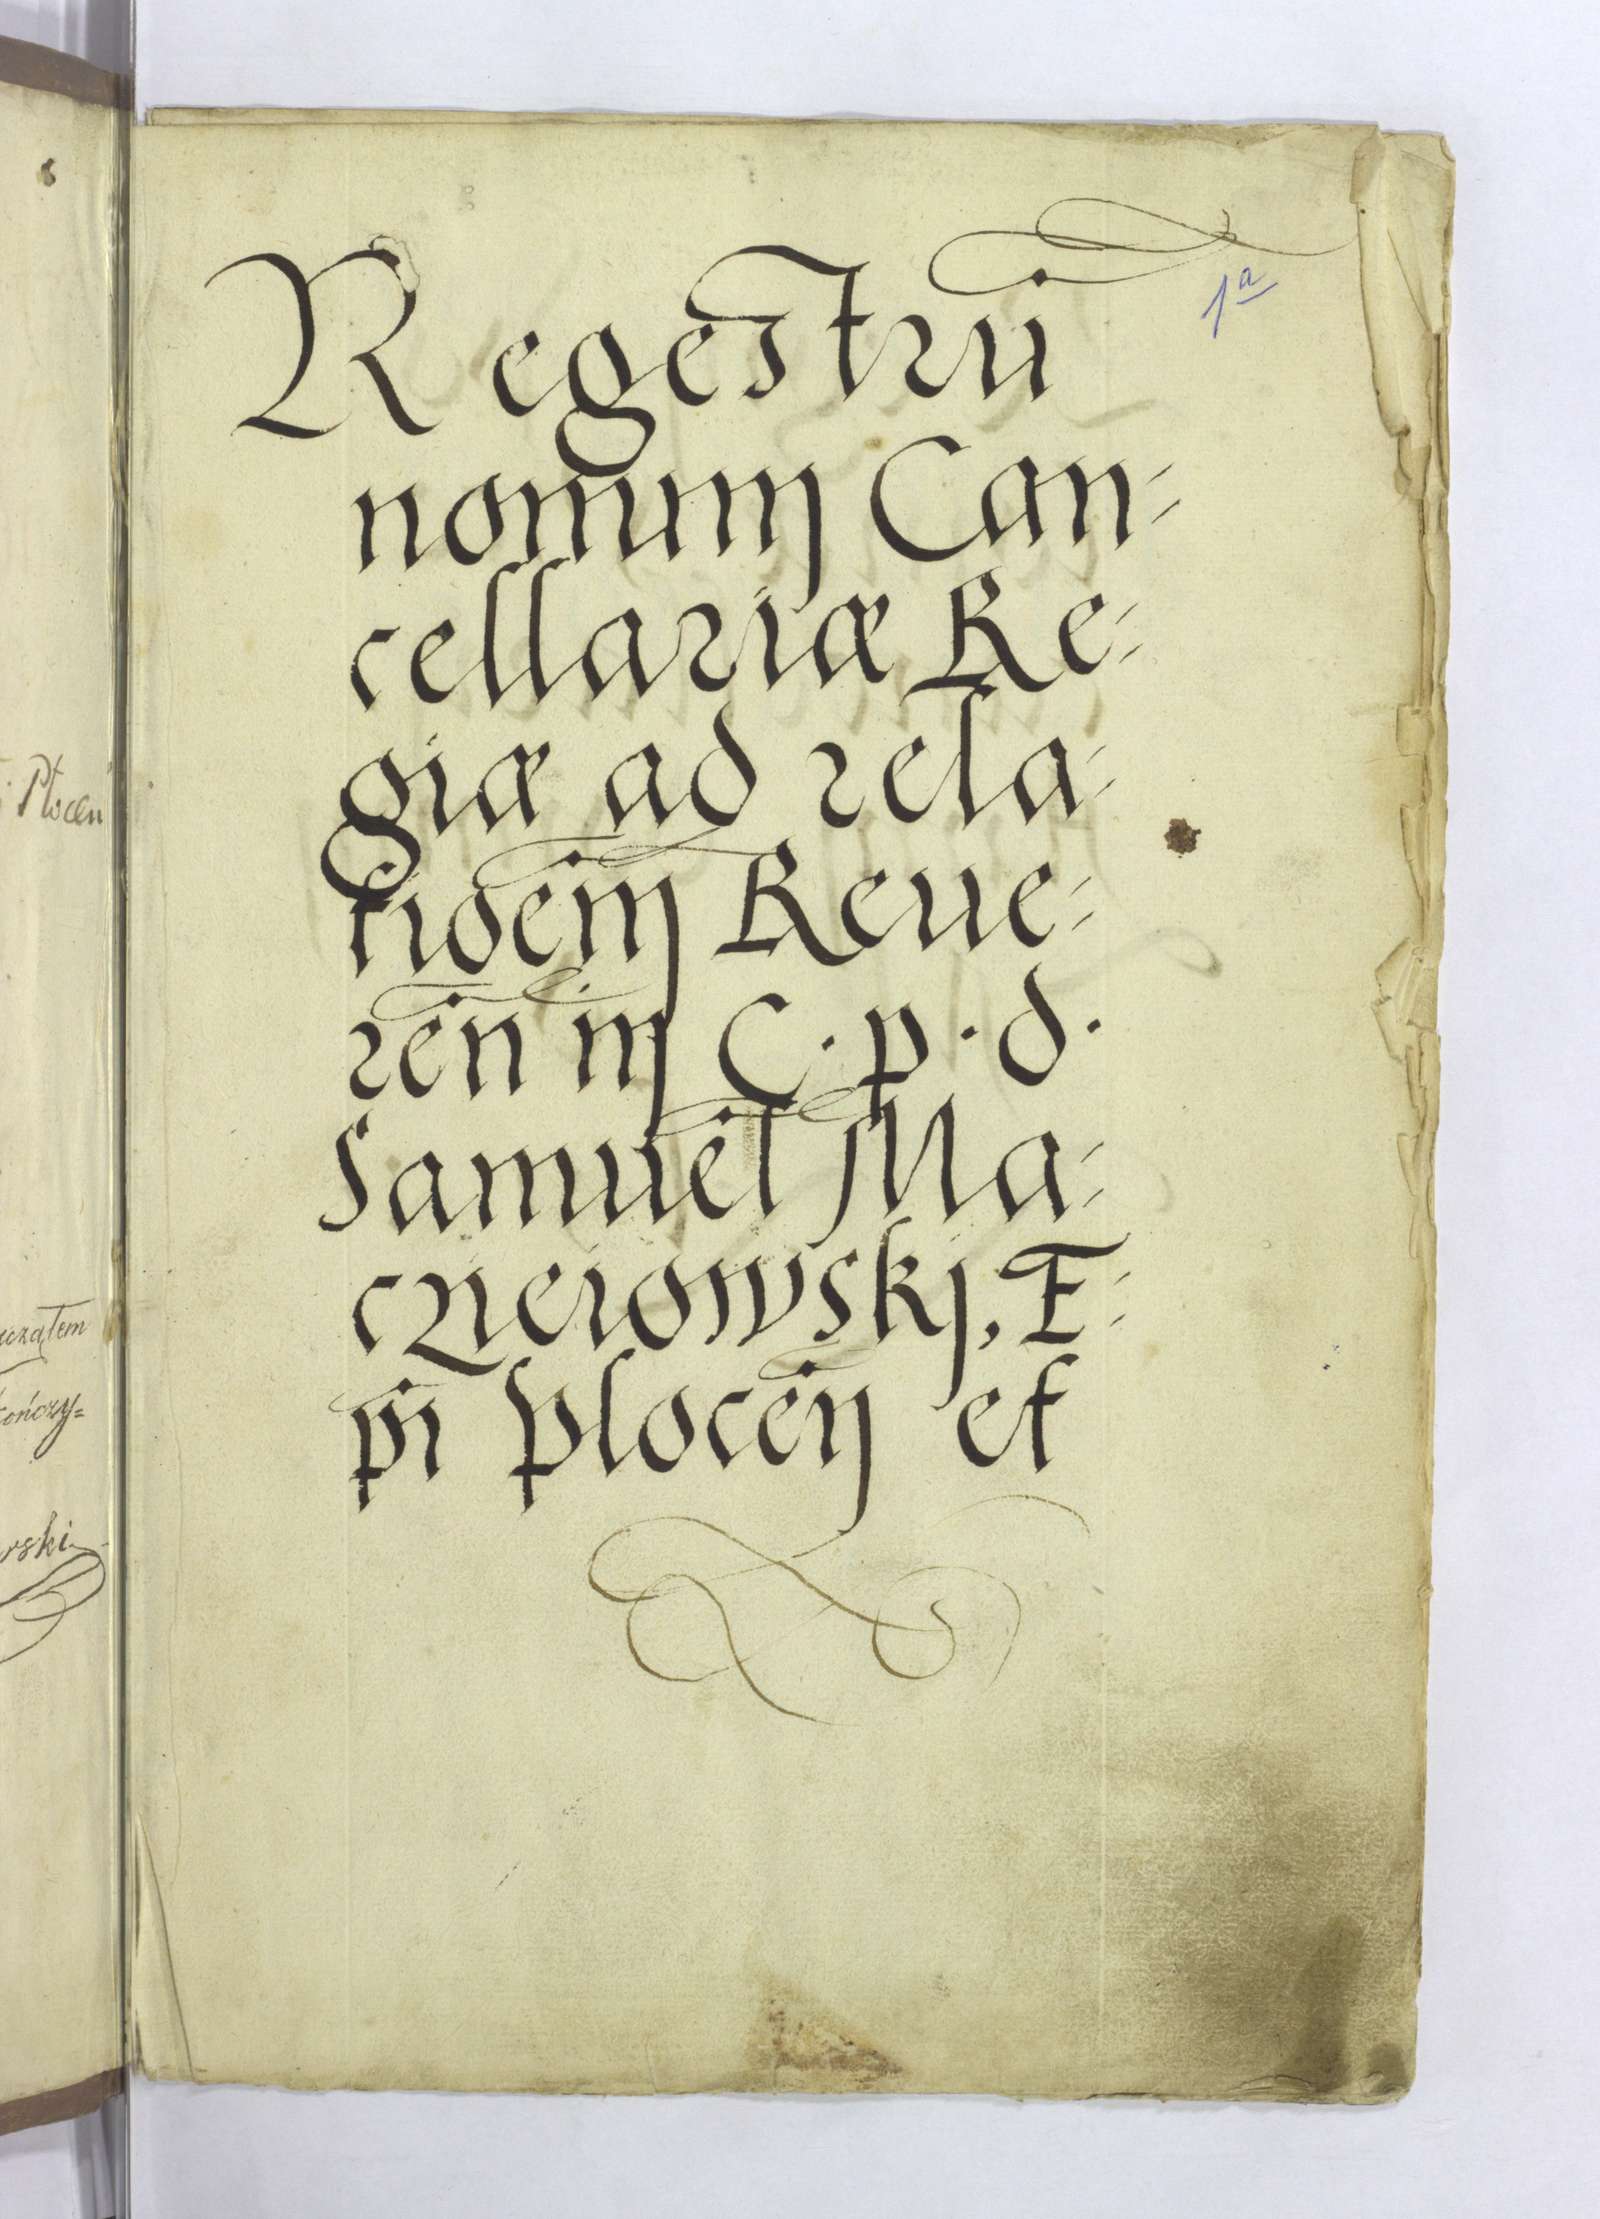 Płocen
cząłem
kończy=
rski
1a
Regestrū
nouum Can-
cellariæ Re-
giæ ad rela-
tiōem Reue-
ren in C. p. d.
Samuel Ma-
czieiowskj, E-
pi Plocen et